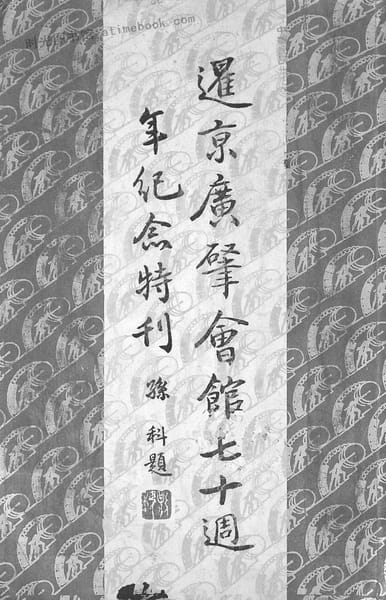 暹京廣肇會館七十週
年紀念特刊
孫科題